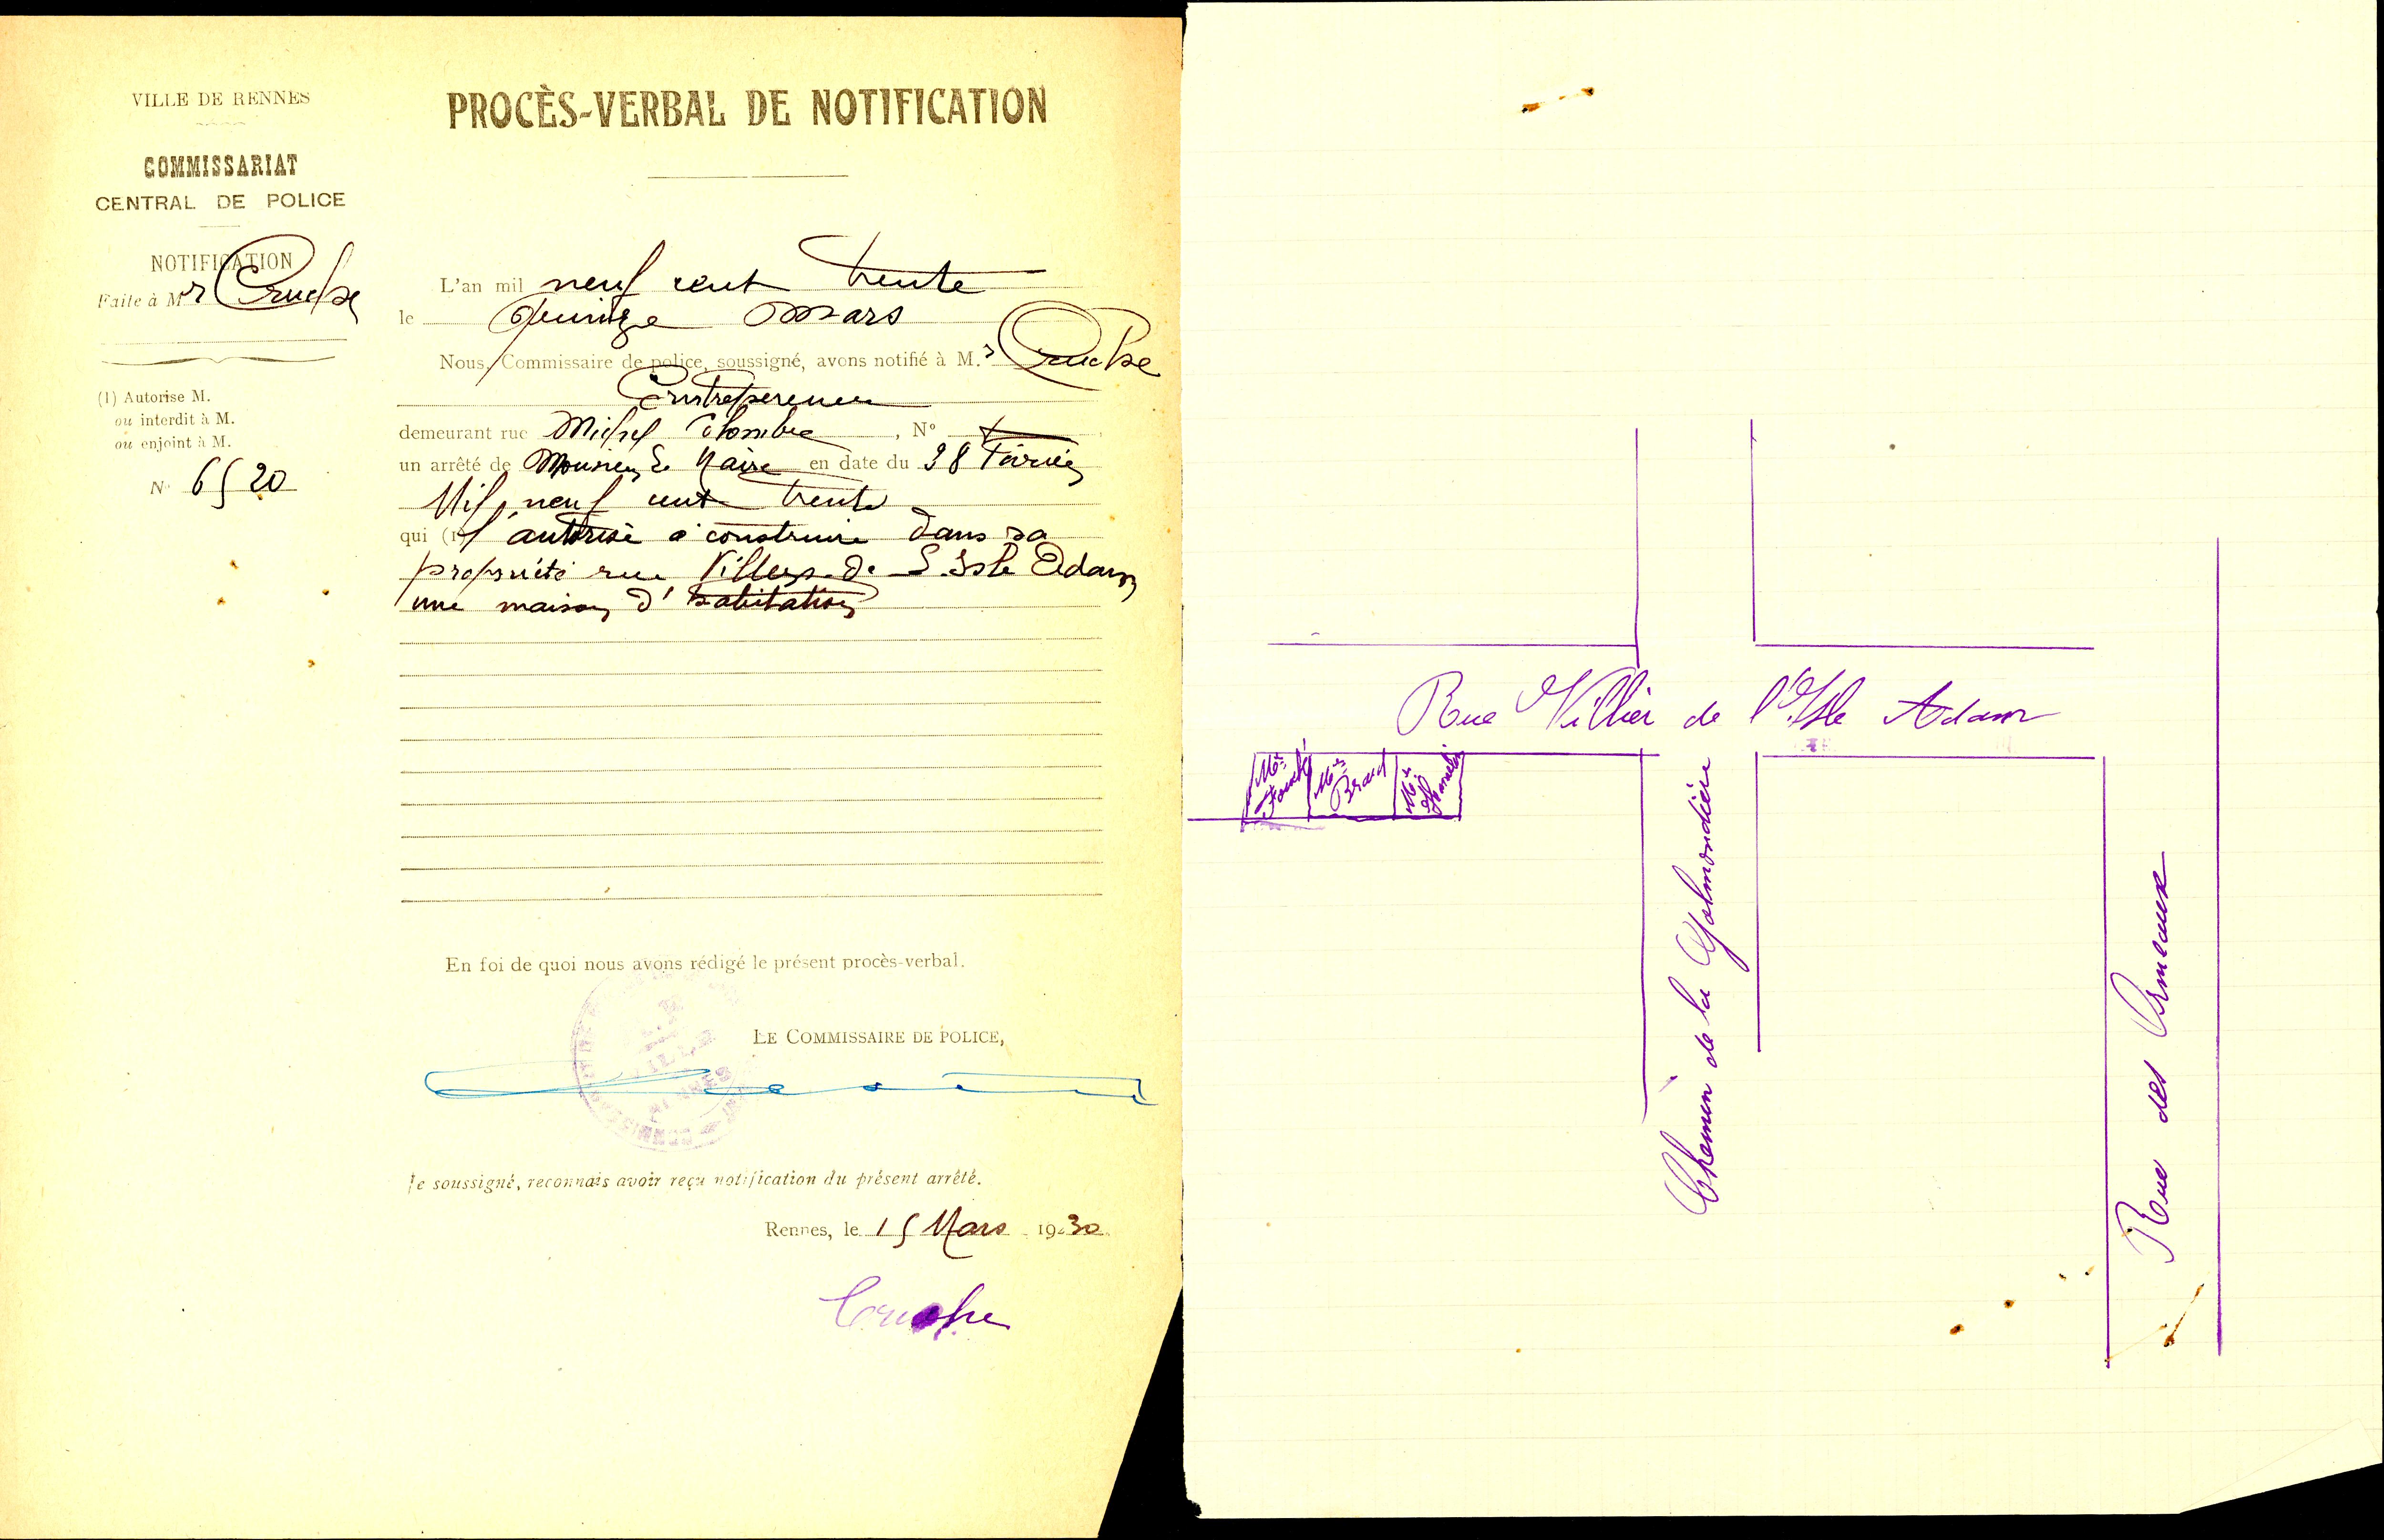 VILLE DE RENNES
COMMISSARIAT
CENTRAL DE POLICE
NOTIFICATION
Faite à Mr Cruche
(1) Autorise M.
ou interdit à M.
ou enjoint à M.
N° 6520
PROCÈS-VERBAL DE NOTIFICATION
L'an mil neuf cent trente
le Quinze Mars
Nous, Commissaire de police, soussigné, avons notifié à M.r Cruche
Entrepreneur
demeurant rue Michel Colombe, N°
un arrêté de Monsieur le Maire en date du 28 Février
Mil neuf cent trente
qui (1) l'autorise à construire dans sa
propriété rue Villiers de L'Isle Adam
une maison d'habitation
En foi de quoi nous avons rédigé le présent procès-verbal.
LE COMMISSAIRE DE POLICE,
VILLE
RENNES
Je soussigné, reconnais avoir reçu notification du présent arrêté.
Rennes, le 15 Mars 1930
Cruche
Rue Villier de l'Isle Adam
Mr
Mr Braud
Mr
Chemin de la Galmondière
Rue des Ormeaux